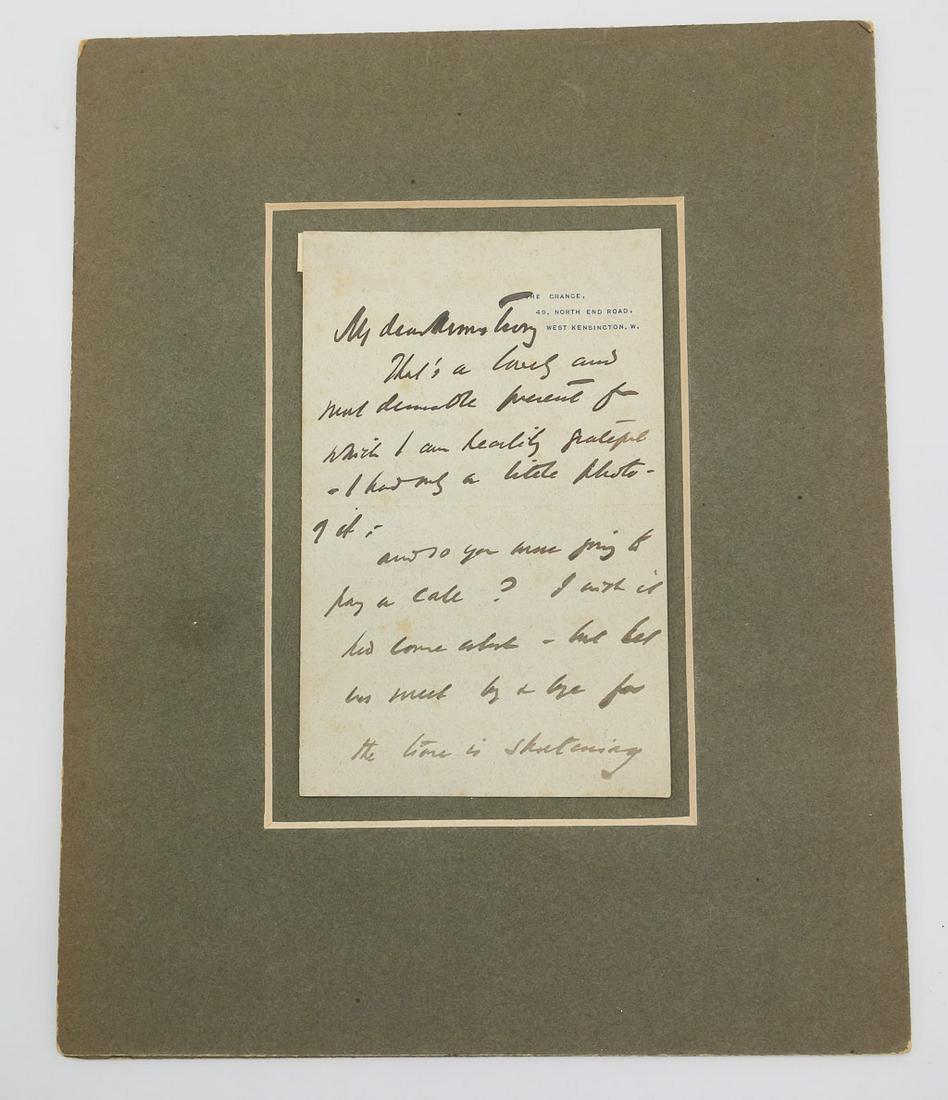 THE GRANGE,
49, NORTH END ROAD,
WEST KENSINGTON, W.
My dear Armstrong
That's a lovely and
most desirable present for
which I am heartily grateful
- I had only a little photo-
of it -
and so you were going to
pay a call ? I wish it
had come about - but let
us meet by & bye for
the time is shortening